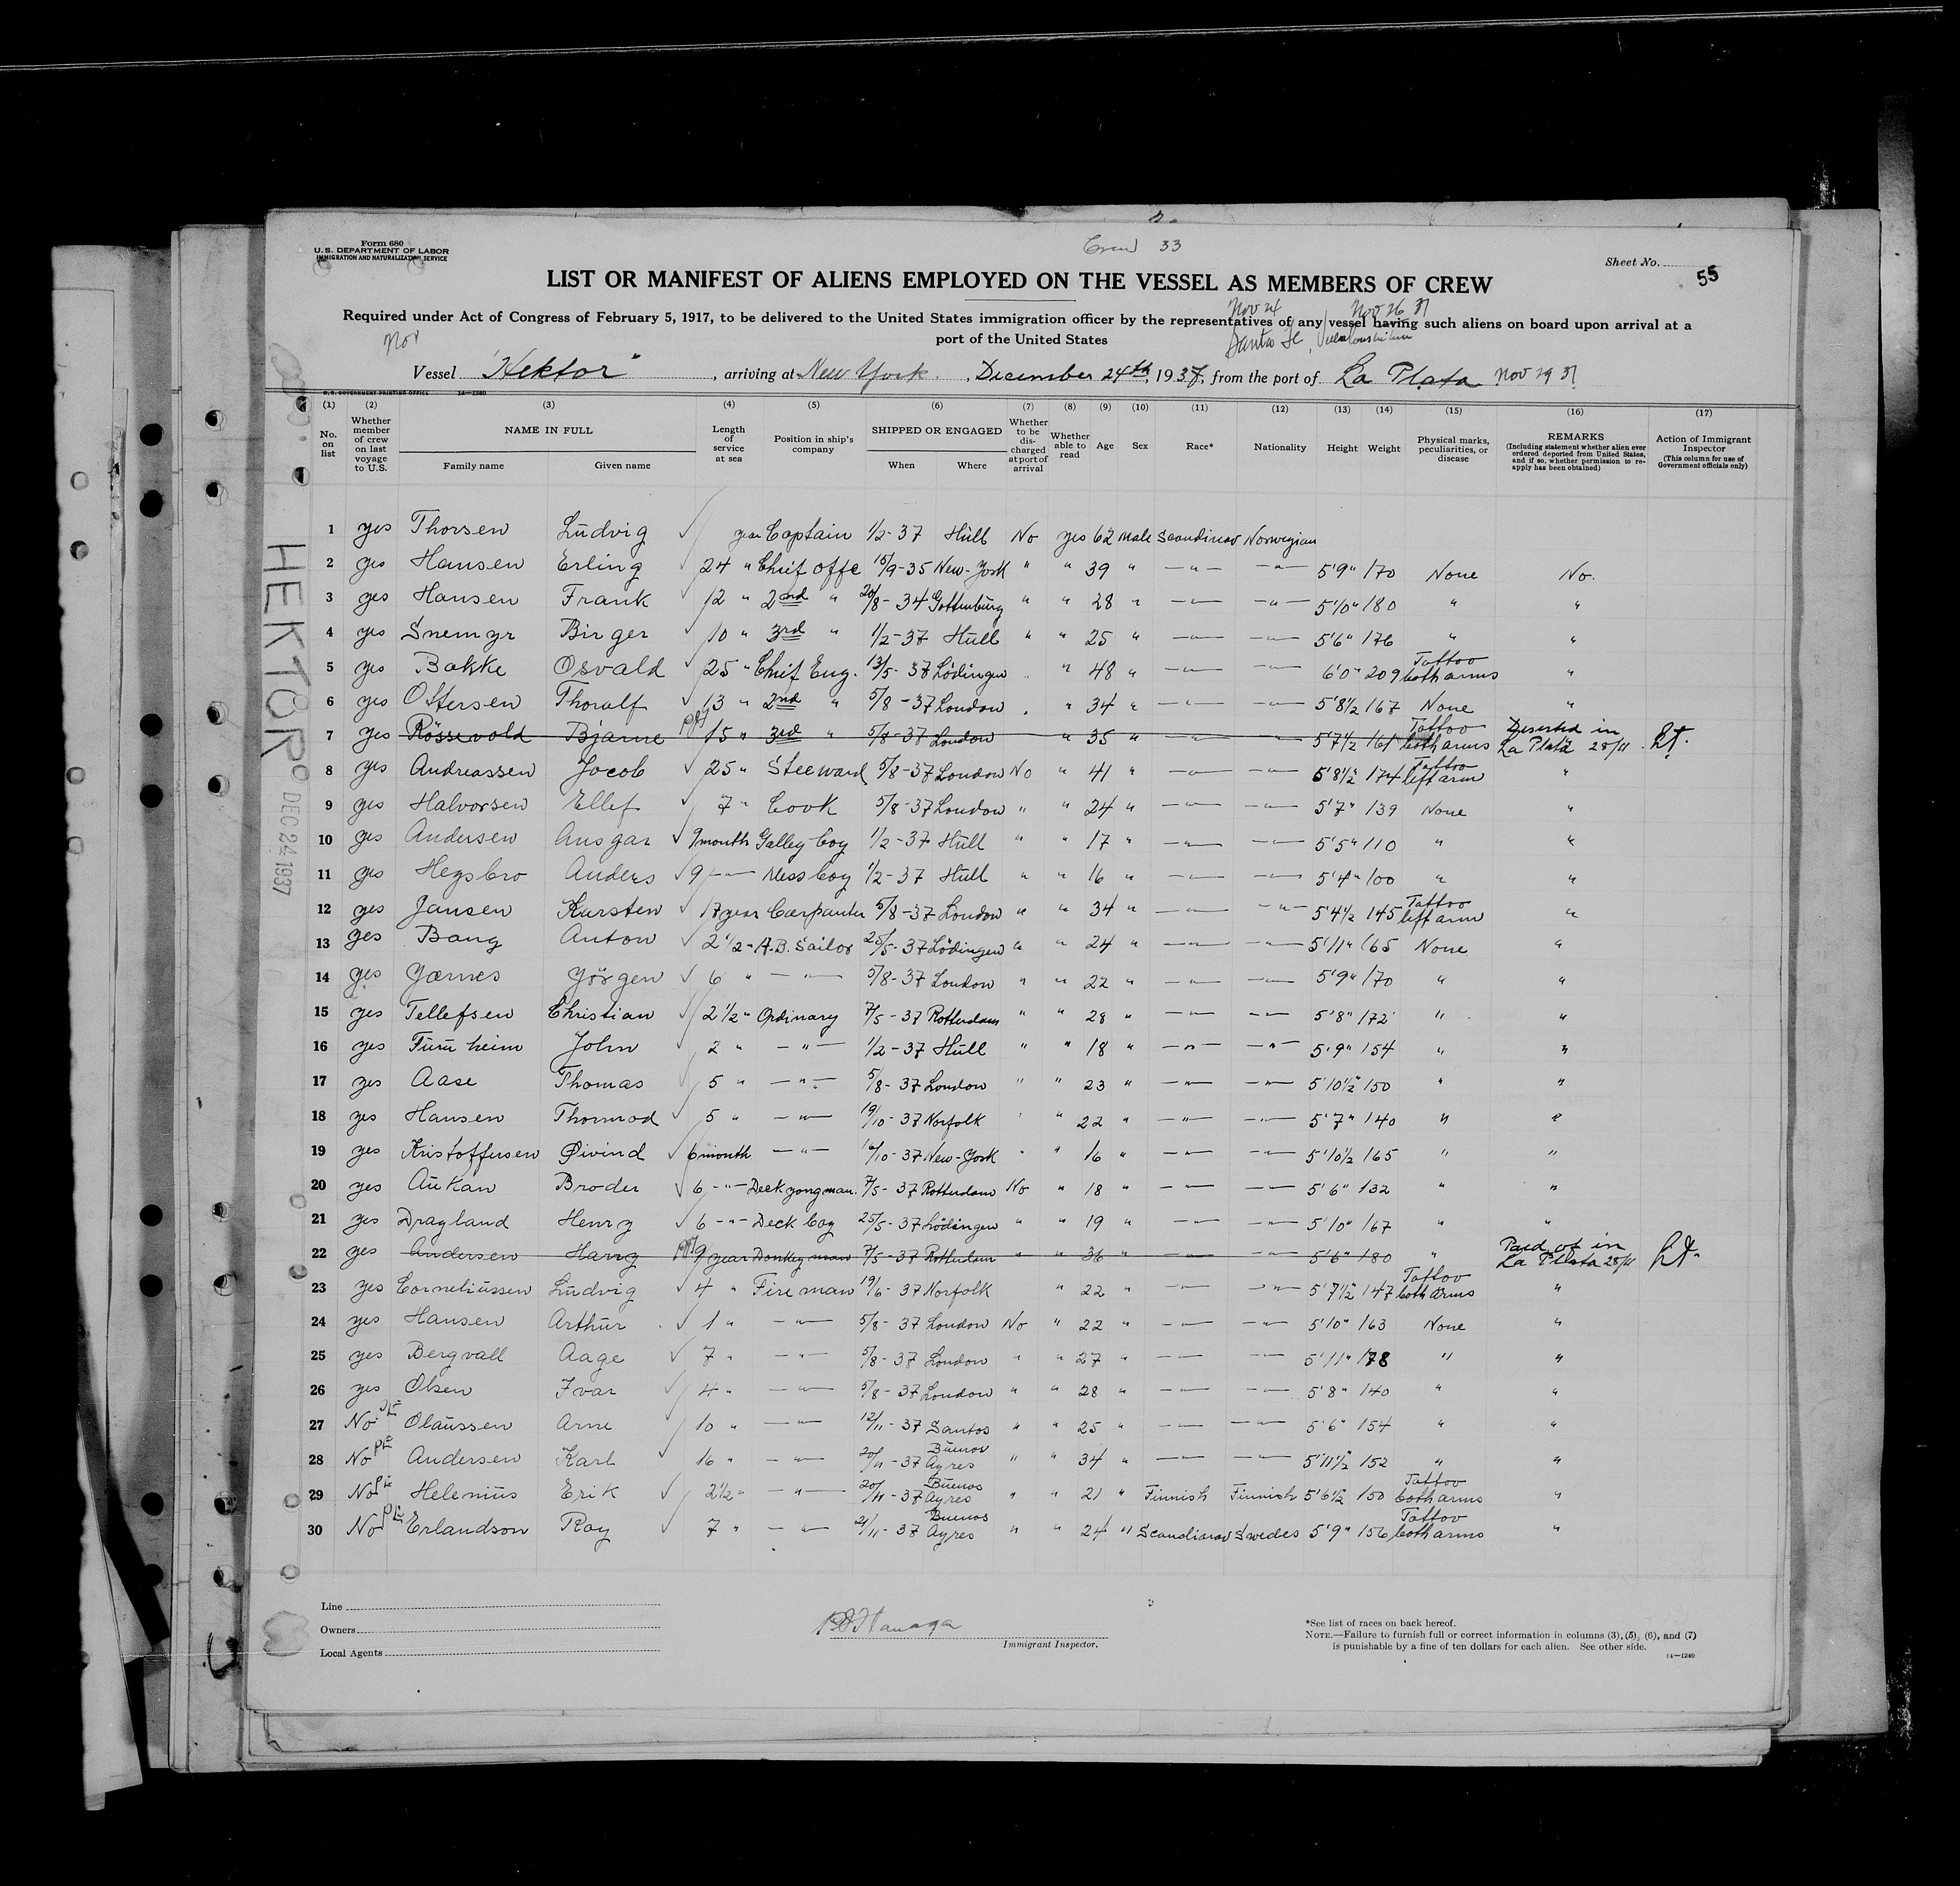 Crew 33
Form 680
U.S. DEPARTMENT OF LABOR
IMMIGRATION AND NATURALIZATION SERVICE
Sheet No.
55
LIST OR MANIFEST OF ALIENS EMPLOYED ON THE VESSEL AS MEMBERS OF CREW
Nov 24 Nov 26 37
Required under Act of Congress of February 5, 1917, to be delivered to the United States immigration officer by the representatives of any vessel having such aliens on board upon arrival at a
port of the United States
Nor
Vessel "Hektor", arriving at New York, December 24th, 1937, from the port of La Plata Nov 29 37
U.S. GOVERNMENT PRINTING OFFICE 14—1240
(1) (2) (3) (4) (5) (6) (7) (8) (9) (10) (11) (12) (13) (14) (15) (16) (17)
No. on list
Whether member of crew on last voyage to U.S.
NAME IN FULL
Family name Given name
Length of service at sea
Position in ship's company
SHIPPED OR ENGAGED
When Where
Whether to be discharged at port of arrival
Whether able to read
Age
Sex
Race*
Nationality
Height
Weight
Physical marks, peculiarities, or disease
REMARKS
(Including statement whether alien ever ordered deported from United States, and if so, whether permission to reapply has been obtained)
Action of Immigrant Inspector
(This column for use of Government officials only)
HEKTOR
DEC 24 1937
1 yes Thorsen Ludvig year Captain 1/2-37 Hull No yes 62 Male Scandinav Norwegian
2 yes Hansen Erling 24 " Chief offc 15/9-35 New-York " " 39 " —"— —"— 5'9" 170 None No.
3 yes Hansen Frank 12 " 2nd " 20/8-34 Gottenburg " " 28 " —"— —"— 5'10" 180 " "
4 yes Snemyr Birger 10 " 3rd " 1/2-37 Hull " " 25 " —"— —"— 5'6" 176 " "
5 yes Bakke Osvald 25 " Chief Eng. 13/5-37 Lödingen " " 48 " —"— —"— 6'0" 209 Tattoo both arms "
6 yes Ottersen Thoralf 13 " 2nd " 5/8-37 London " " 34 " —"— —"— 5'8½ 167 None "
7 yes Rössevold Bjarne 15 " 3rd " 5/8-37 London " 35 " —"— —"— 5'7½ 161 Tattoo both arms Deserted in La Plata 28/11
8 yes Andreassen Jacob 25 " Steeward 5/8-37 London No " 41 " —"— —"— 5'8½ 174 Tattoo left arm "
9 yes Halvorsen Ellef 7 " Cook 5/8-37 London " " 24 " —"— —"— 5'7" 139 None "
10 yes Andersen Ansgar 9 month Galley boy 1/2-37 Hull " " 17 " —"— —"— 5'5" 110 " "
11 yes Hegsbro Anders 9 —"— Mess boy 1/2-37 Hull " " 16 " —"— —"— 5'4" 100 " "
12 yes Jansen Karsten 17 year Carpanter 5/8-37 London " " 34 " —"— —"— 5'4½ 145 Tattoo left arm "
13 yes Bang Anton 2½ " A.B. Sailor 25/5-37 Lödingen " " 24 " —"— —"— 5'11" 165 None "
14 yes Jærnes Jörgen 6 " —"— 5/8-37 London " " 22 " —"— —"— 5'9" 170 " "
15 yes Tellefsen Christian 2½ " Ordinary 7/5-37 Rotterdam " " 28 " —"— —"— 5'8" 172 " "
16 yes Furuheim John 2 " —"— 1/2-37 Hull " " 18 " —"— —"— 5'9" 154 " "
17 yes Aase Thomas 5 " —"— 5/8-37 London " " 23 " —"— —"— 5'10½" 150 " "
18 yes Hansen Thormod 5 " —"— 19/10-37 Norfolk " " 22 " —"— —"— 5'7" 140 " "
19 yes Kristoffersen Øivind 6 month —"— 16/10-37 New-York " " 16 " —"— —"— 5'10½ 165 " "
20 yes Aukan Broder 6 —"— Deck yongman. 7/5-37 Rotterdam No " 18 " —"— —"— 5'6" 132 " "
21 yes Dragland Henry 6 —"— Deck boy 25/5-37 Lödingen " " 19 " —"— —"— 5'10" 167 " "
22 yes Andersen Hang 9 year Donkeyman 7/5-37 Rotterdam " " 36 5'6" 180 " Paid of in La Plata 28/11
23 yes Corneliussen Ludvig 4 " Fireman 19/6-37 Norfolk " 22 " —"— —"— 5'7½" 147 Tattoo both arms "
24 yes Hansen Arthur 1 " —"— 5/8-37 London No " 22 " —"— —"— 5'10" 163 None "
25 yes Bergvall Aage 7 " —"— 5/8-37 London " " 27 " —"— —"— 5'11" 178 " "
26 yes Olsen Ivar 4 " —"— 5/8-37 London " " 28 " —"— —"— 5'8" 140 " "
27 No Olaussen Arne 10 " —"— 12/11-37 Santos " " 25 " —"— —"— 5'6" 154 " "
28 No Andersen Karl 16 " —"— 20/11-37 Buenos Ayres " " 34 " —"— —"— 5'11½" 152 " "
29 No Helenius Erik 2½ " —"— 20/11-37 Buenos Ayres " " 21 " Finnish Finnish 5'6½ 150 Tattoo both arms "
30 No Erlandson Roy 7 " —"— 21/11-37 Buenos Ayres " " 24 " Scandianav Swedes 5'9" 156 Tattoo both arms "
Line
Owners
Local Agents
Immigrant Inspector.
*See list of races on back hereof.
NOTE.—Failure to furnish full or correct information in columns (3), (5), (6), and (7)
is punishable by a fine of ten dollars for each alien. See other side.
14—1240